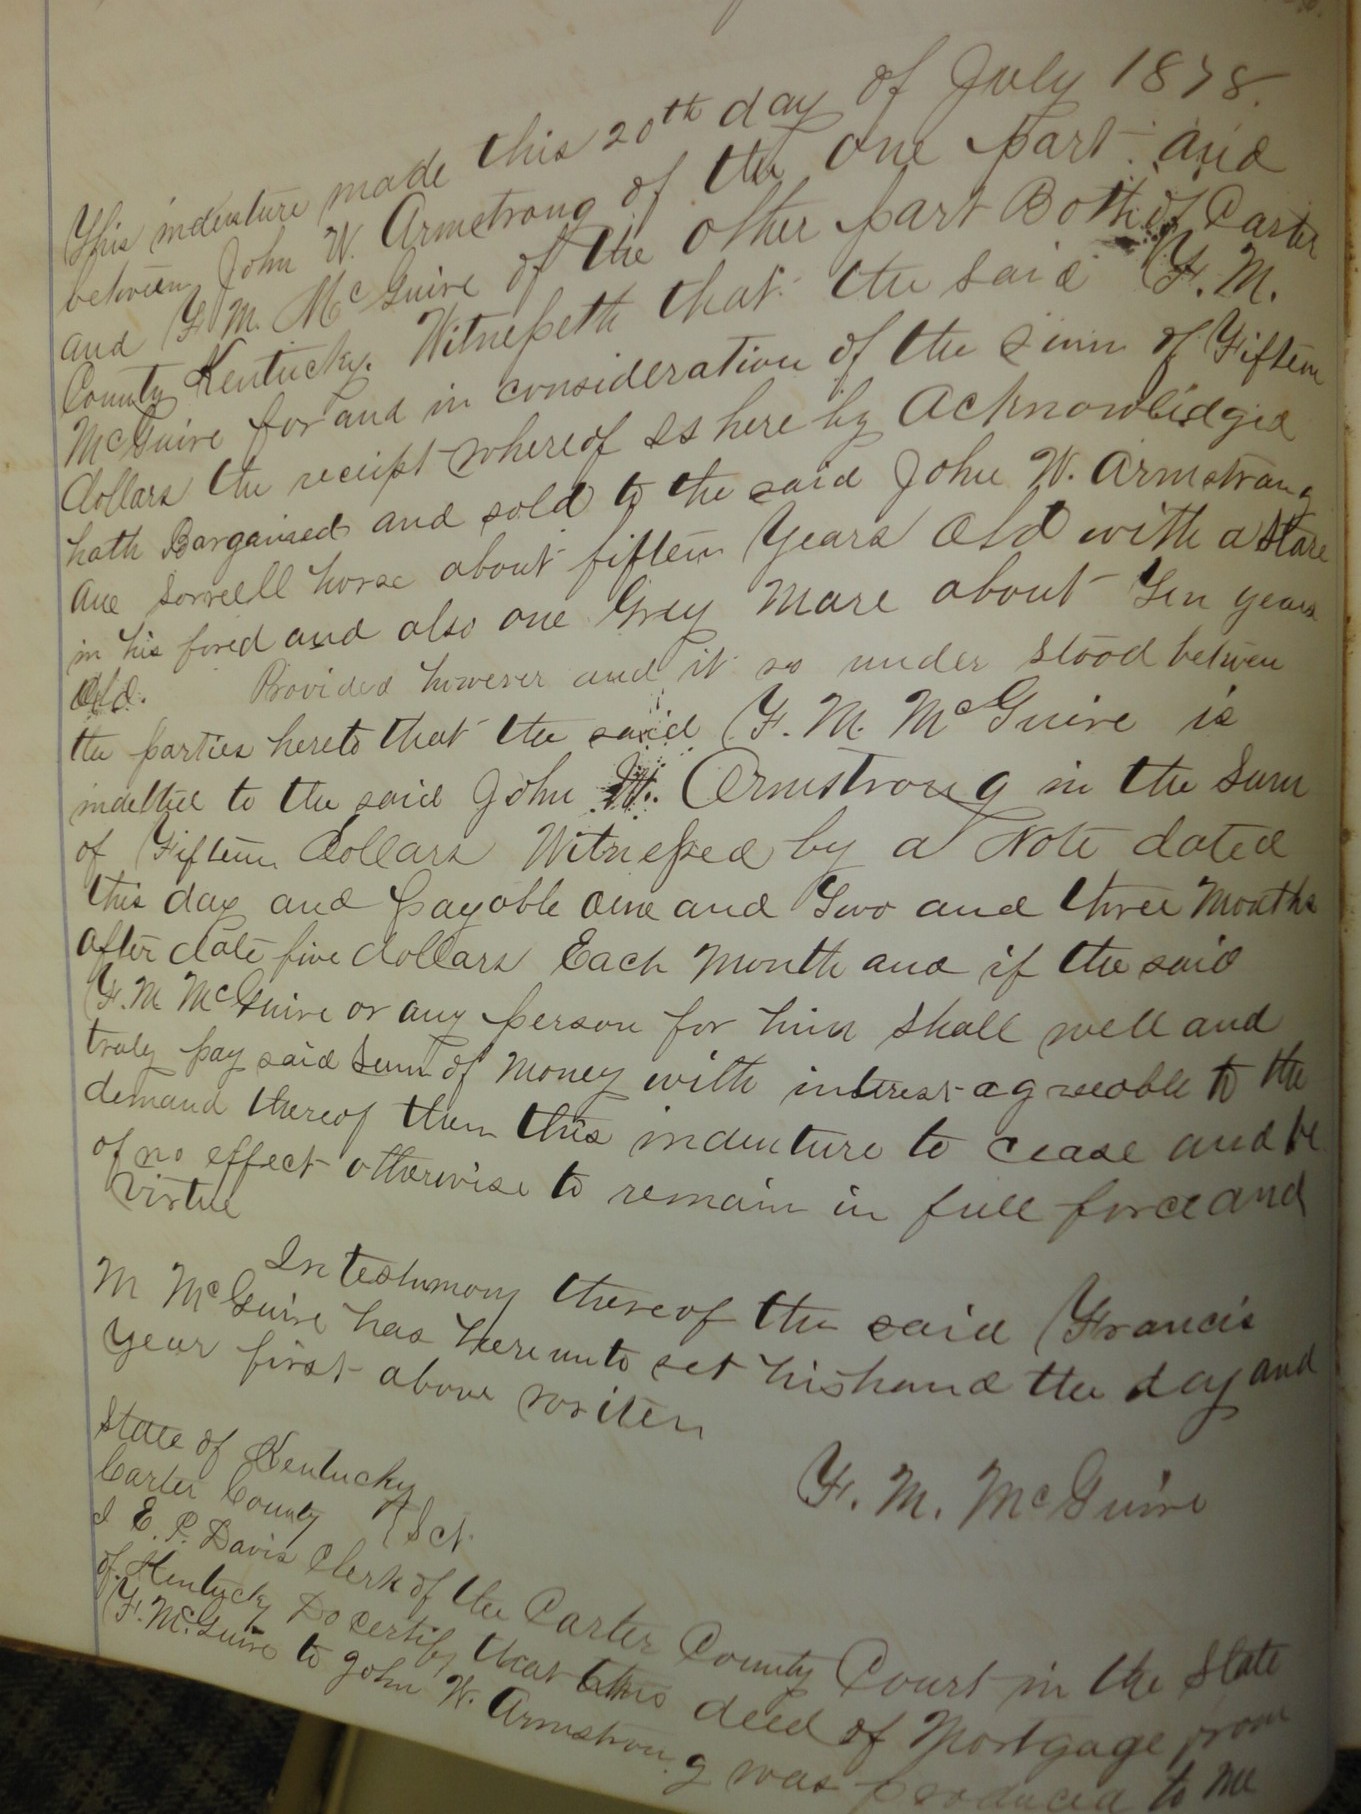 This indenture made this 20th day of July 1878.
between John W. Armstrong of the one part and
and F. M. McGuire of the other part Both of Carter
County Kentucky. Witnesseth that the said F. M.
McGuire for and in consideration of the sum of Fifteen
dollars the receipt whereof is here by Acknowledged
hath Bargained and sold to the said John W. Armstrong
one Sorrell horse about fifteen years old with a Stare
in his fored and also one Grey Mare about Ten years
old. Provided however and it is under stood between
the parties hereto that the said F. M. McGuire is
indetted to the said John W. Armstrong in the Sum
of Fifteen dollars Witnessed by a Note dated
this day and payable one and Two and three Months
after date five dollars Each Month and if the said
F. M McGuire or any person for him shall well and
truly pay said Sum of Money with interest agreeable to the
demand thereof then this indenture to cease and be
of no effect otherwise to remain in full force and
virtue
In testimony thereof the said Francis
M McGuire has hereunto set his hand the day and
year first above writen
F. M. McGuire
State of Kentucky
Carter County } Sct.
I E. P. Davis Clerk of the Carter County Court in the State
of Kentucky Do certify that this deed of Mortgage from
F. McGuire to John W. Armstrong was produced to me